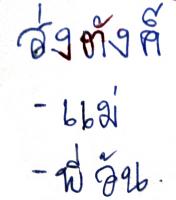 ส่งตังค์
- แม่
- พี่อ้น.